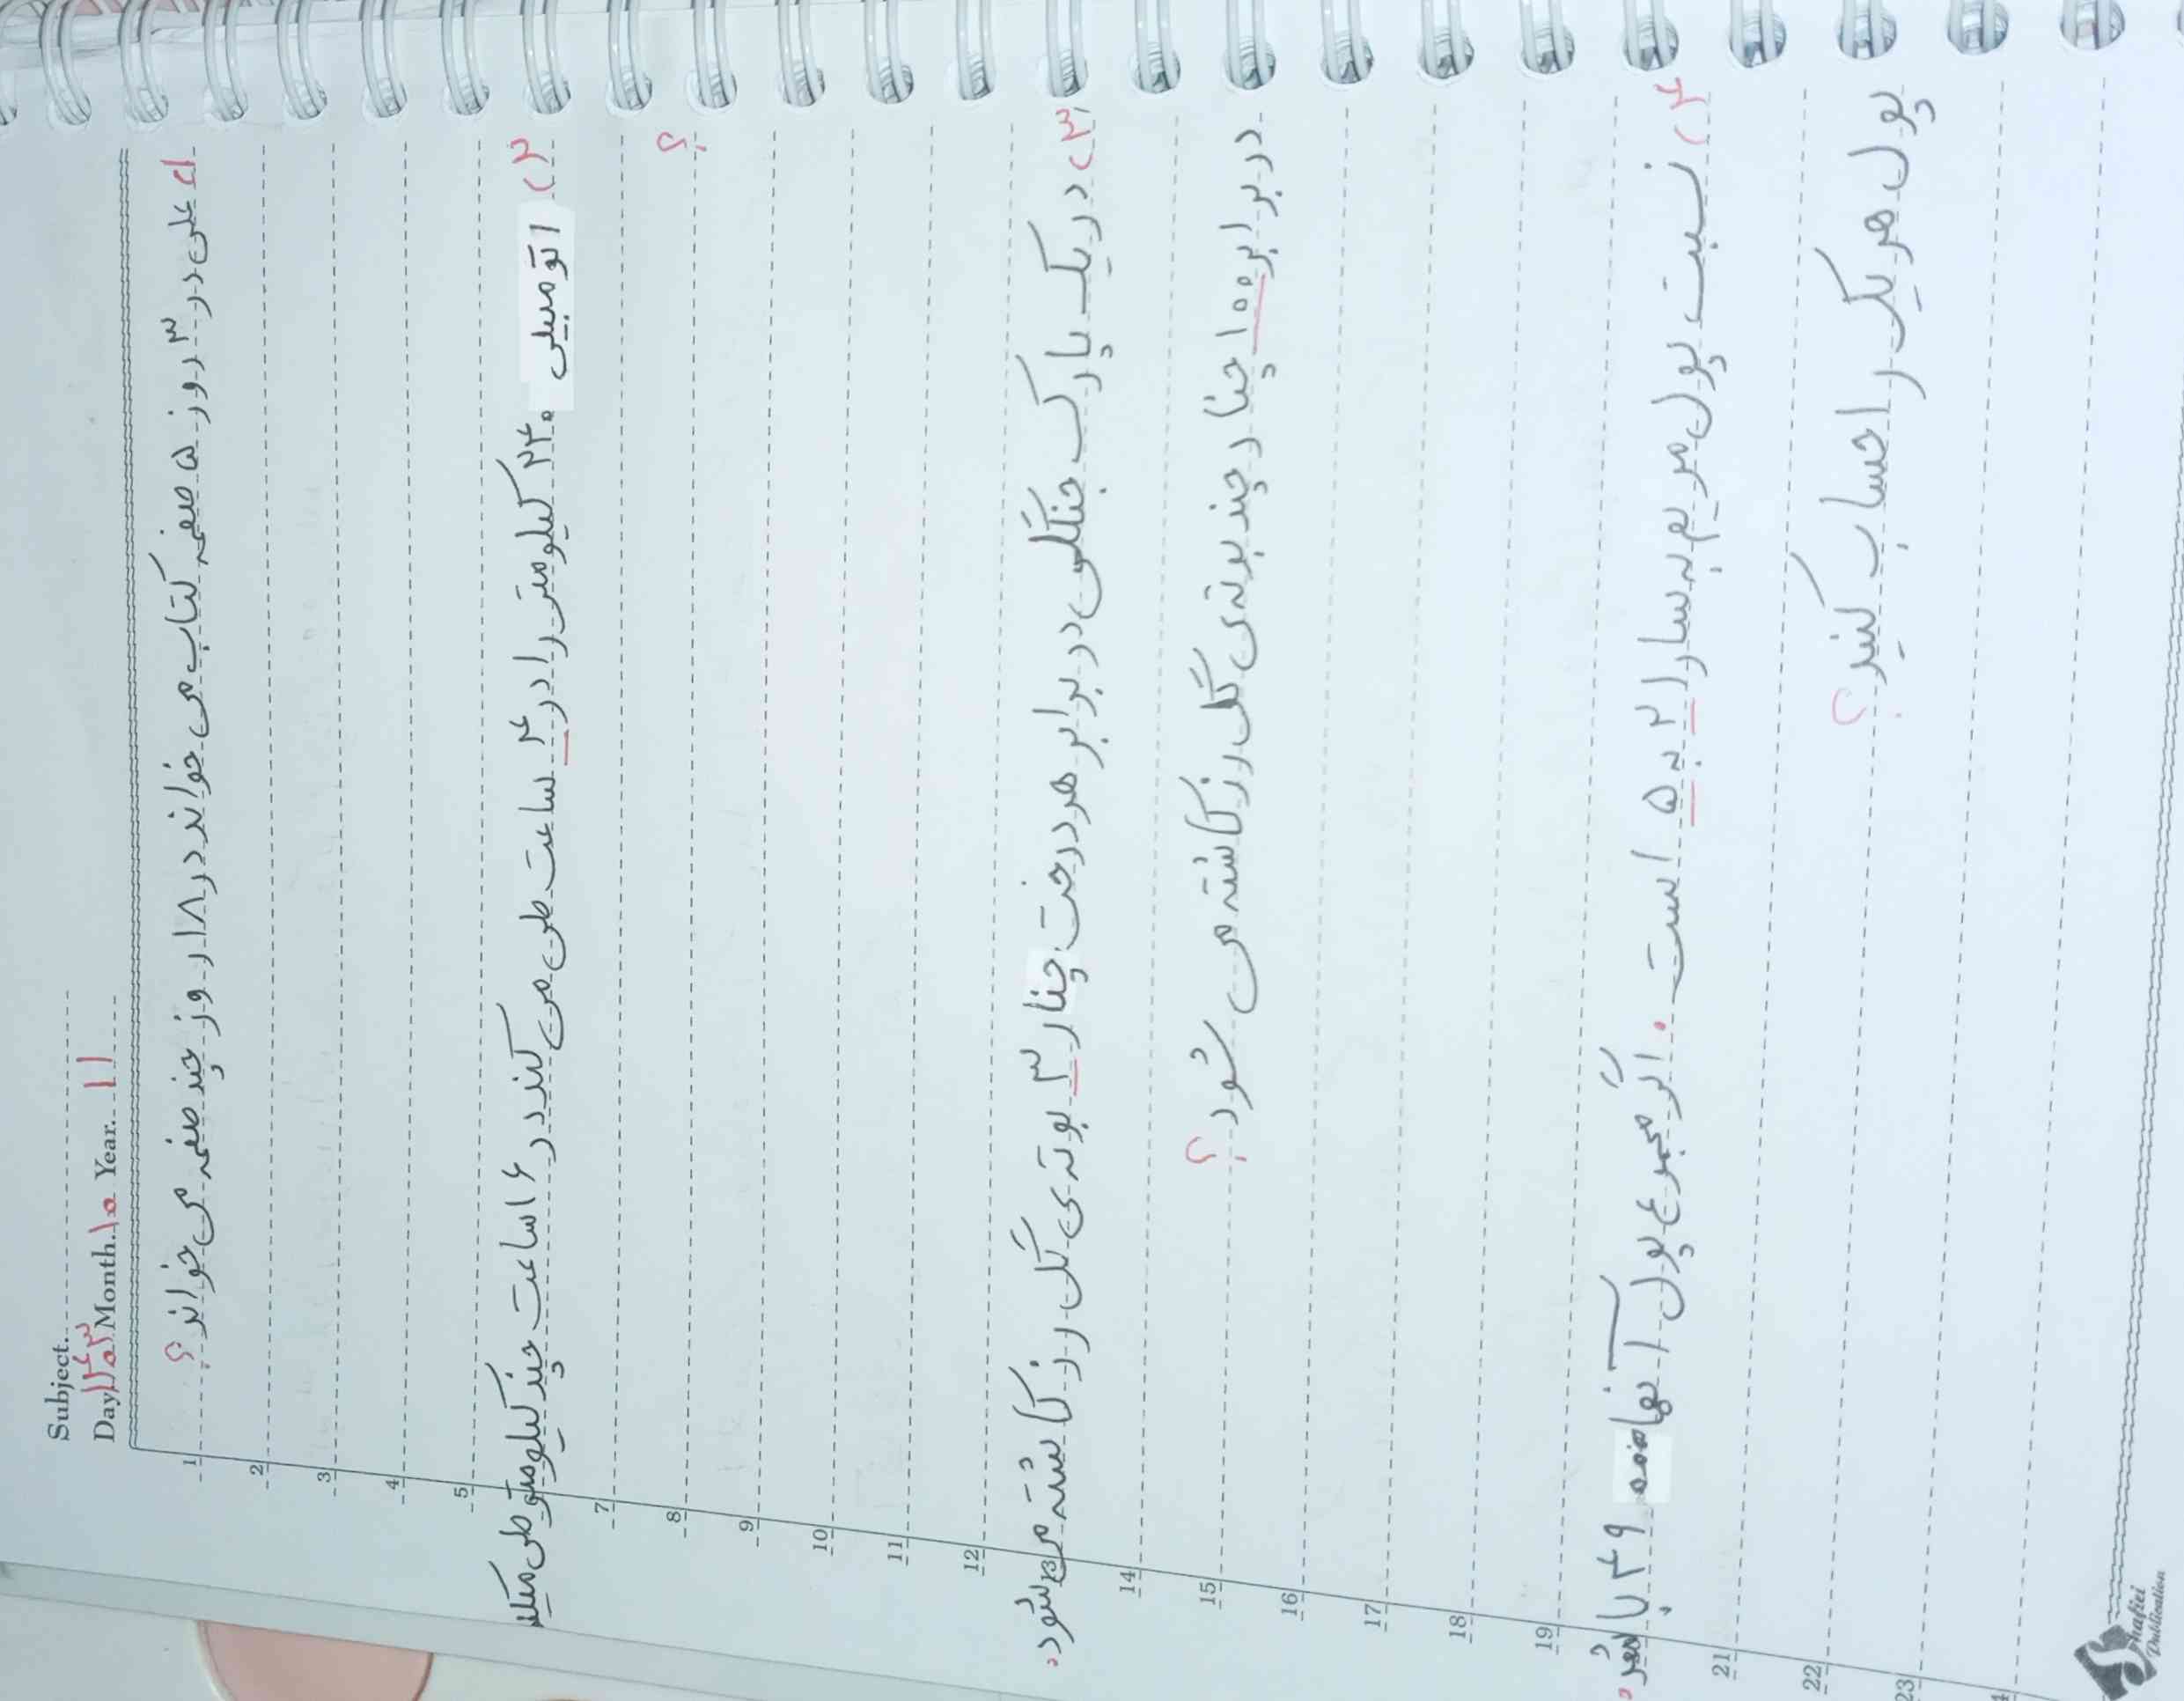 Subject.
Day ۱۴۰۳ Month. ۱۰ Year. ۱۱
1 ۱) علی در ۳ روز ۵ صفحه کتاب می خواند در ۱۸ روز چند صفحه می خواند؟
2
3
4
5
۲) اتومبیلی ۲۴۰ کیلومتر را در ۴ ساعت طی می کند در ۱۶ ساعت چند کیلومتر طی میکند
7
8 ؟
9
10
11
12
13 ۳) در یک پارک جنگلی در برابر هر درخت چنار ۳ بوته ی گل رز کاشته می شود.
14
15 در برابر ۱۰۰ چنار چند بوته ی گل رز کاشته می شود؟
16
17
18
19
۴) نسبت پول مریم به سارا ۲ به ۵ است. اگر مجموع پول آنها ۴۹۰۰۰ باشد.
21
22 پول هر یک را حساب کنید؟
23
Shafiei
Publication